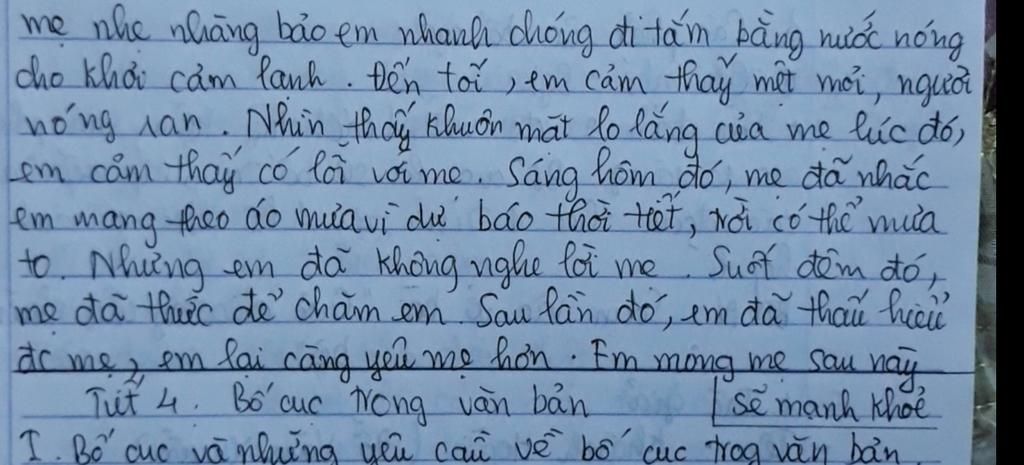 mẹ nhẹ nhàng bảo em nhanh chóng đi tắm bằng nước nóng
cho khỏi cảm lạnh. Đến tối, em cảm thấy mệt mỏi, người
nóng ran. Nhìn thấy khuôn mặt lo lắng của mẹ lúc đó,
em cảm thấy có lỗi với mẹ. Sáng hôm đó, mẹ đã nhắc
em mang theo áo mưa vì dự báo thời tiết, trời có thể mưa
to. Nhưng em đã không nghe lời mẹ. Suốt đêm đó,
mẹ đã thức để chăm em. Sau lần đó, em đã thấu hiểu
đc mẹ, em lại càng yêu mẹ hơn. Em mong mẹ sau này
sẽ mạnh khoẻ
Tiết 4. Bố cục trong văn bản
I. Bố cục và những yêu cầu về bố cục trog văn bản.